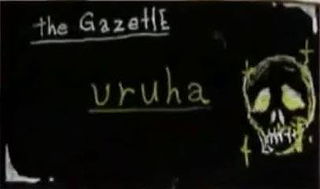 the GazettE
uruha